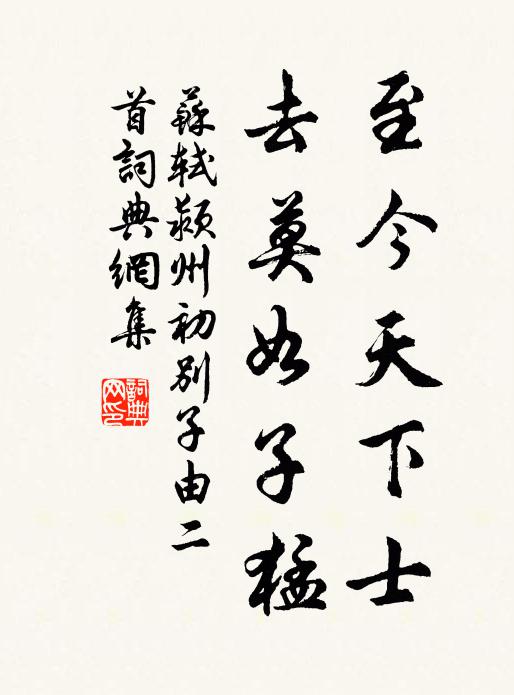 至今天下士
去莫如子猛
蘇軾潁州初別子由二
首詞典網集
詞典
网印